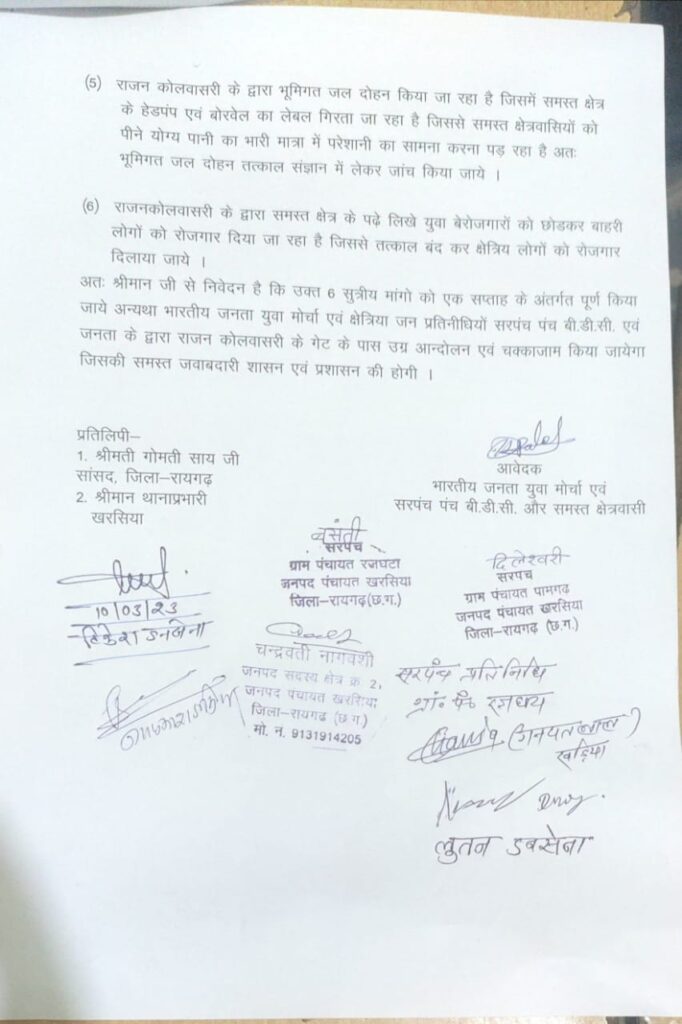 (5) राजन कोलवासरी के द्वारा भूमिगत जल दोहन किया जा रहा है जिसमें समस्त क्षेत्र
के हेडपंप एवं बोरवेल का लेबल गिरता जा रहा है जिससे समस्त क्षेत्रवासियों को
पीने योग्य पानी का भारी मात्रा में परेशानी का सामना करना पड़ रहा है अतः
भूमिगत जल दोहन तत्काल संज्ञान में लेकर जांच किया जाये ।
(6) राजनकोलवासरी के द्वारा समस्त क्षेत्र के पढ़े लिखे युवा बेरोजगारों को छोडकर बाहरी
लोगों को रोजगार दिया जा रहा है जिससे तत्काल बंद कर क्षेत्रिय लोगों को रोजगार
दिलाया जाये ।
अतः श्रीमान जी से निवेदन है कि उक्त 6 सुत्रीय मांगो को एक सप्ताह के अंतर्गत पूर्ण किया
जाये अन्यथा भारतीय जनता युवा मोर्चा एवं क्षेत्रिया जन प्रतिनीधियों सरपंच पंच बी.डी.सी. एवं
जनता के द्वारा राजन कोलवासरी के गेट के पास उग्र आन्दोलन एवं चक्काजाम किया जायेगा
जिसकी समस्त जवाबदारी शासन एवं प्रशासन की होगी ।
प्रतिलिपी–
1. श्रीमती गोमती साय जी
सांसद, जिला–रायगढ़
2. श्रीमान थानाप्रभारी
खरसिया
आवेदक
भारतीय जनता युवा मोर्चा एवं
सरपंच पंच बी.डी.सी. और समस्त क्षेत्रवासी
बसंती
सरपंच
ग्राम पंचायत रजघटा
जनपद पंचायत खरसिया
जिला–रायगढ़(छ.ग.)
दिलेश्वरी
सरपंच
ग्राम पंचायत पामगढ़
जनपद पंचायत खरसिया
जिला–रायगढ़ (छ.ग.)
10/03/23
चन्द्रवती नागवंशी
जनपद सदस्य क्षेत्र क्र. 2,
जनपद पंचायत खरसिया
जिला–रायगढ़ (छ.ग.)
मो. न. 9131914205
सरपंच प्रतिनिधि
(गनपत लाल)
लुतन डनसेना